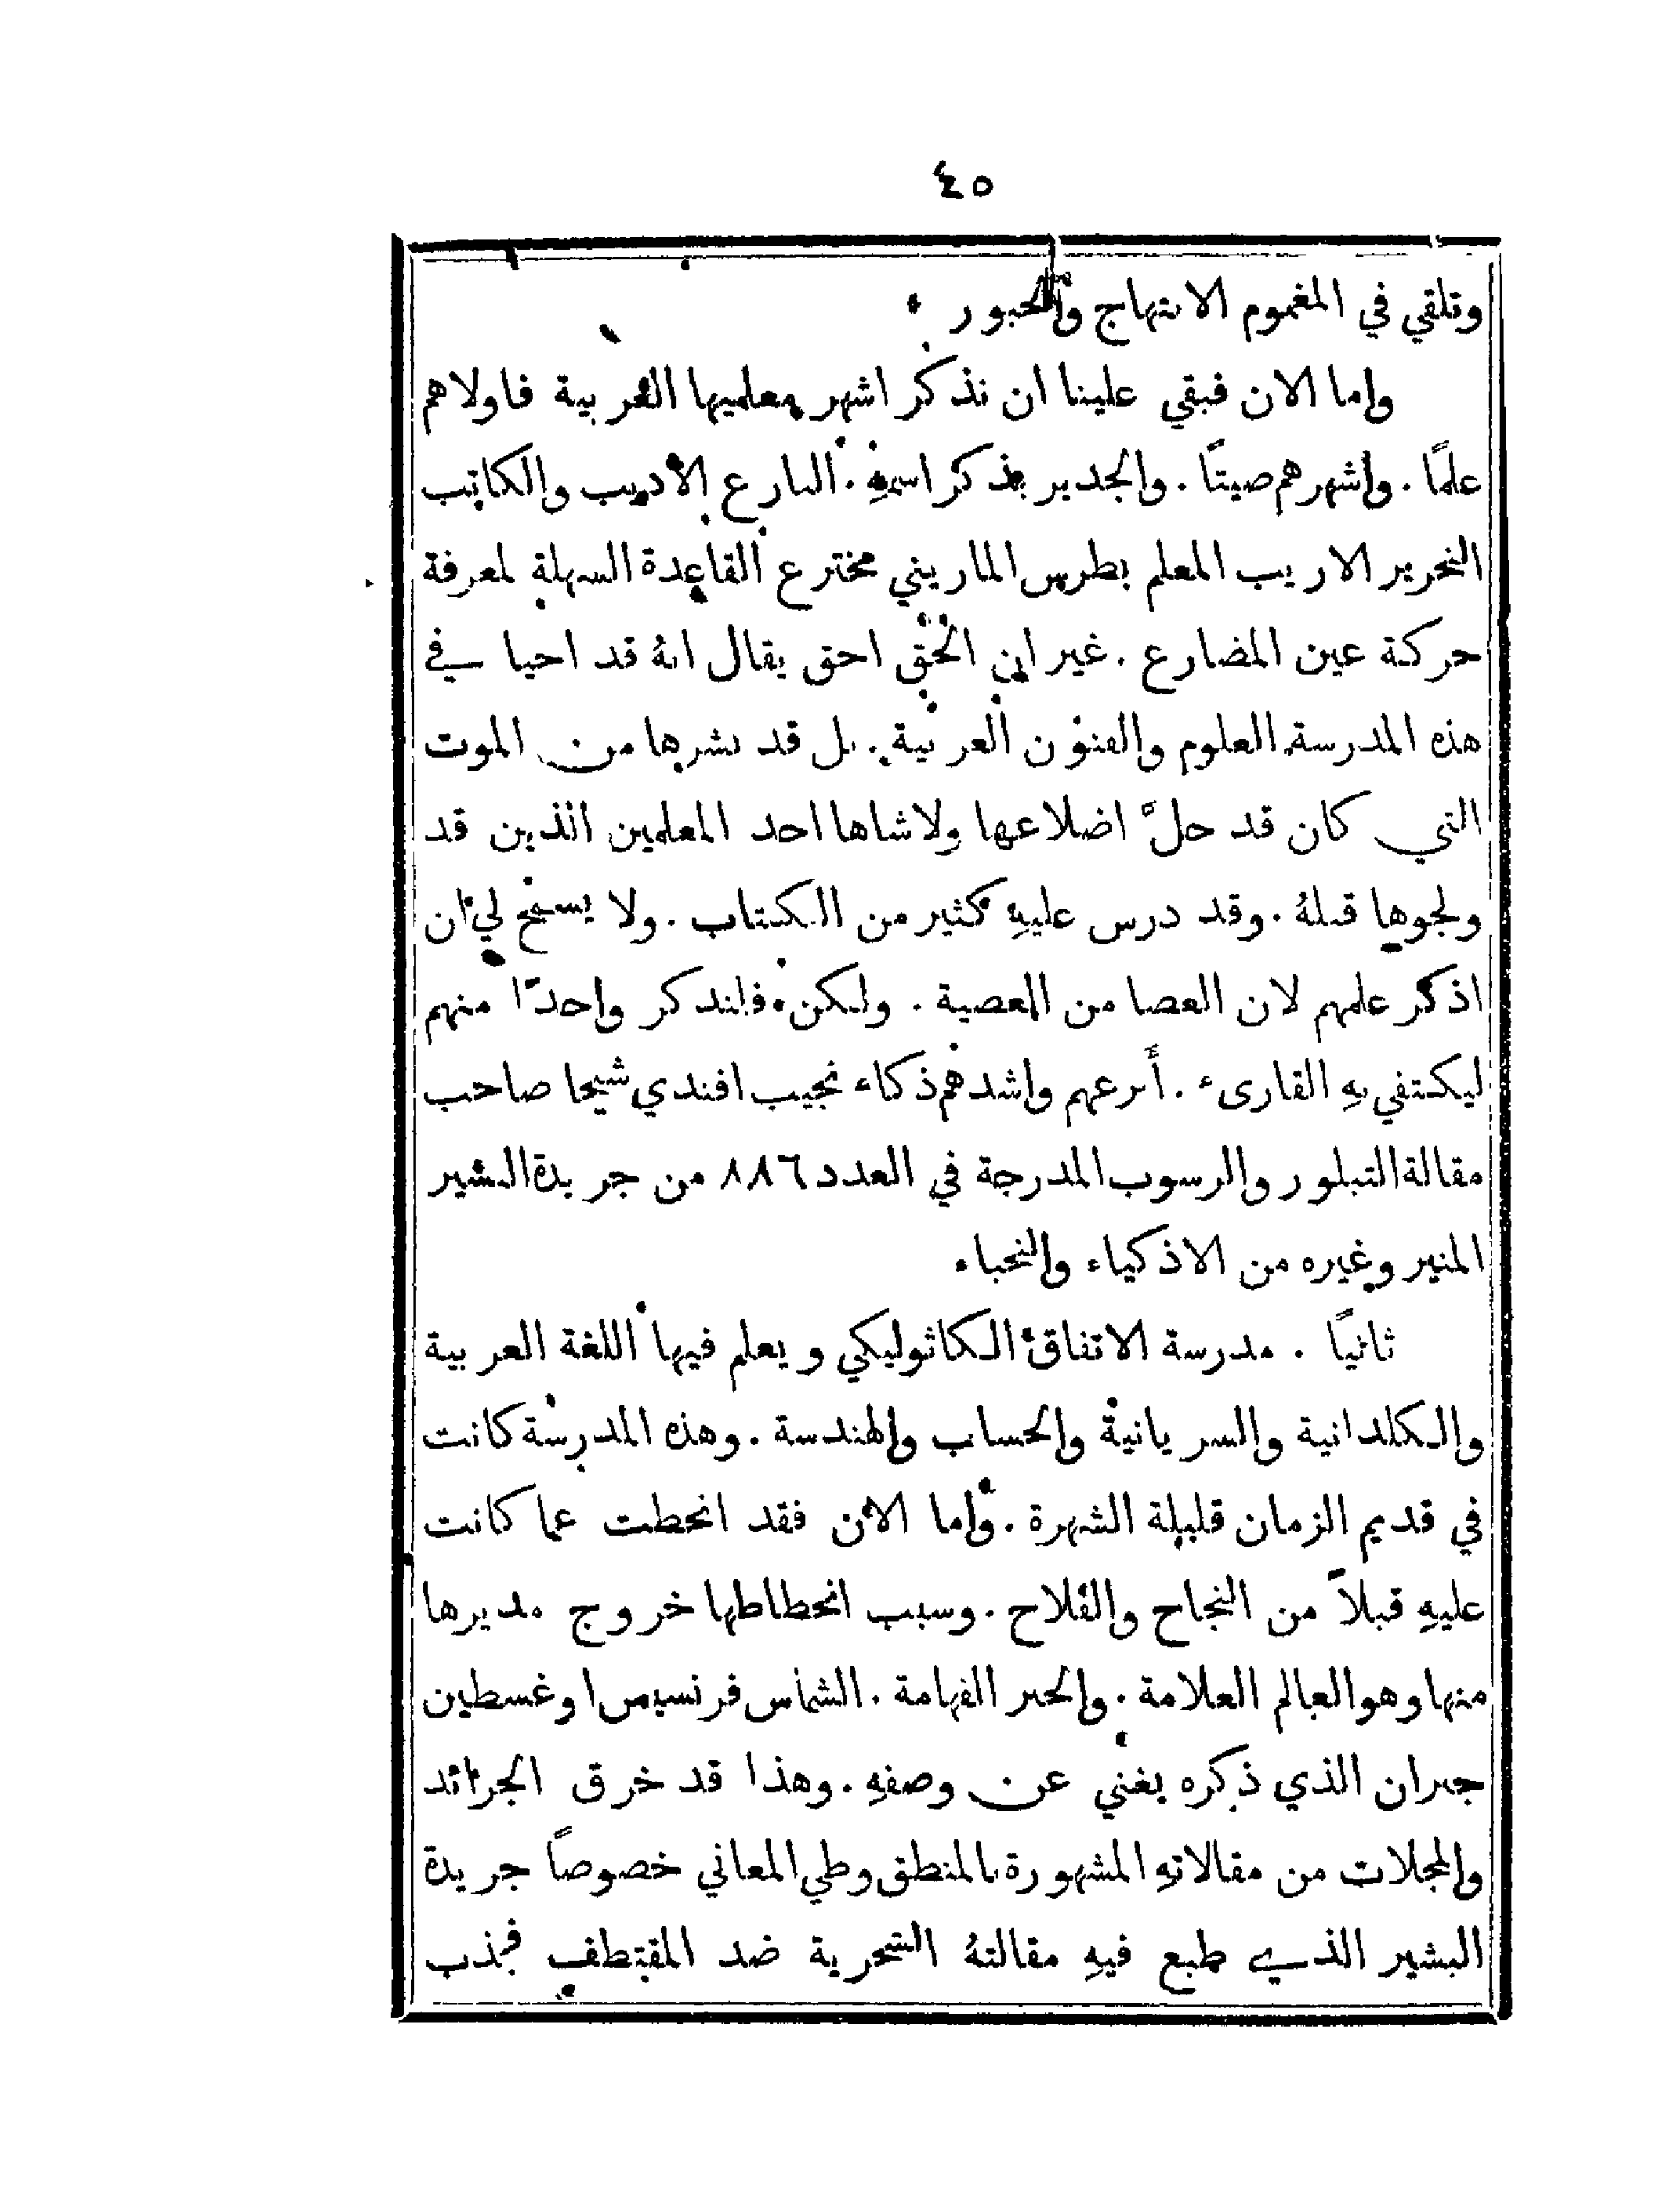 ٤٥
وتلقي في المغموم الابتهاج والحبور .
واما الان فبقي علينا ان نذكر اشهر معلميها العربية فاولاهم
علمًا . واشهرهم صيتًا . والجدير بذكر اسمهِ . البارع الاديب والكاتب
النحرير الاريب المعلم بطرس الماريني مخترع القاعدة السهلة لمعرفة
حركة عين المضارع . غير ان الحق احق يقال انهُ قد احيا في
هذه المدرسة العلوم والفنون العربية . بل قد نشرها من الموت
التي كان قد حلَّ اضلاعها ولاشاها احد المعلمين الذين قد
ولجوها قبلهُ . وقد درس عليهِ كثير من الكتاب . ولا يسمح لي ان
اذكر علمهم لان العصا من العصية . ولكن فلنذكر واحدًا منهم
ليكتفي بهِ القارىء . أبرعهم واشدهم ذكاء نجيب افندي شيحا صاحب
مقالة التبلور والرسوب المدرجة في العدد ٨٨٦ من جريدة البشير
المنير وغيره من الاذكياء والنجباء
ثانيًا . مدرسة الاتفاق الكاثوليكي ويعلم فيها اللغة العربية
والكلدانية والسريانية والحساب والهندسة . وهذه المدرسة كانت
في قديم الزمان قليلة الشهرة . واما الان فقد انحطت عما كانت
عليهِ قبلاً من النجاح والفلاح . وسبب انحطاطها خروج مديرها
منها وهو العالم العلامة . والحبر الفهامة . الشماس فرنسيس اوغسطين
جبران الذي ذكره يغني عن وصفهِ . وهذا قد خرق الجرائد
والمجلات من مقالاتهِ المشهورة بالمنطق وطي المعاني خصوصاً جريدة
البشير الذي طبع فيهِ مقالتهُ السحرية ضد المقتطف فجذب